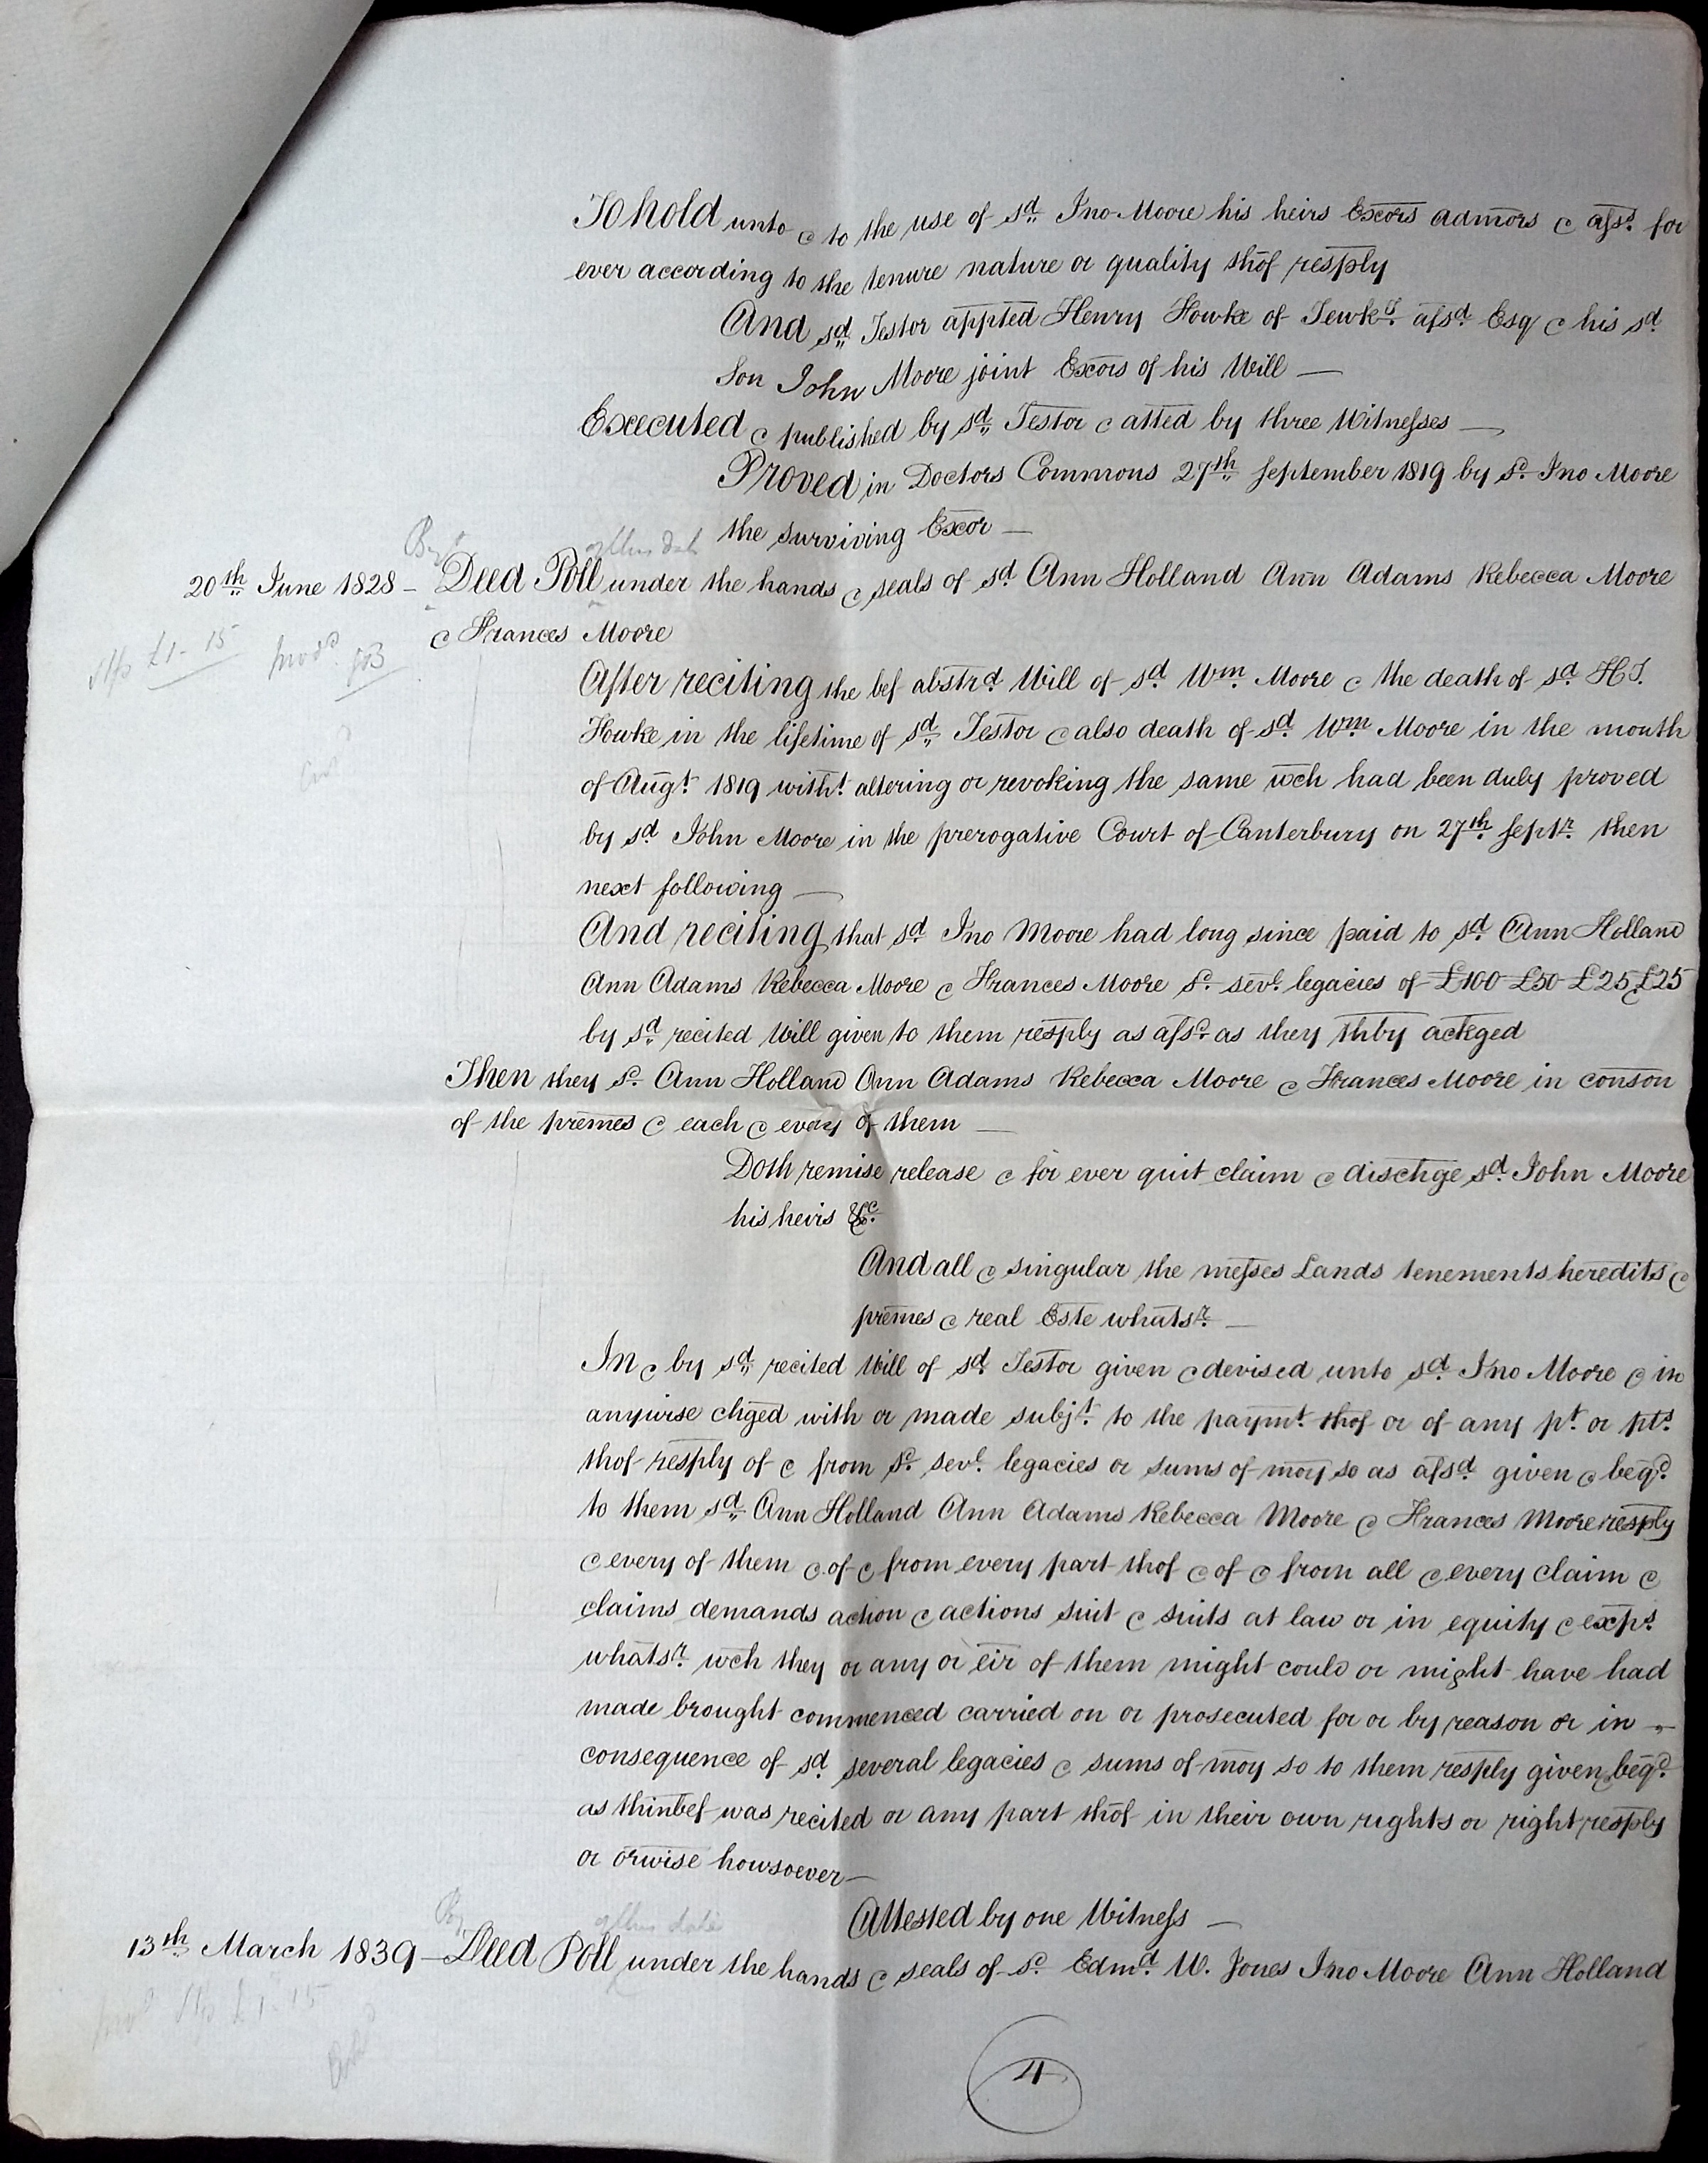 To hold unto & to the use of sd. Jno. Moore his heirs Excors admors & asss. for
ever according to the tenure nature or quality thof resply
And sd. Testor appted Henry Fowke of Tewks. afsd. Esq & his sd.
Son John Moore joint Excors of his Will —
Executed & published by sd. Testor & atted by three Witnesses —
Proved in Doctors Commons 27th September 1819 by sd. Jno Moore
the surviving Excor —
By of this date
20th June 1828 – Deed Poll under the hands & seals of sd. Ann Holland Ann Adams Rebecca Moore
& Frances Moore
Stp £1-15 prodd.
After reciting the bef abstrd. Will of sd. Wm. Moore & the death of sd. H.F.
Fowke in the lifetime of sd. Testor & also death of sd. Wm. Moore in the month
of Augt. 1819 witht. altering or revoking the same wch had been duly proved
by sd. John Moore in the prerogative Court of Canterbury on 27th Septr. then
next following —
And reciting that sd. Jno Moore had long since paid to sd. Ann Holland
Ann Adams Rebecca Moore & Frances Moore sd. sevl. legacies of £100 £50 £25 & £25
by sd. recited Will given to them resply as afsd. as they thby ackged
Then they sd. Ann Holland Ann Adams Rebecca Moore & Frances Moore in conson
of the premes & each & every of them —
Doth remise release & for ever quit claim & dischge sd. John Moore
his heirs &c.
And all & singular the messes Lands tenements heredits &
premes & real Este whatsr. —
In & by sd. recited Will of sd. Testor given & devised unto sd. Jno Moore & in
anywise chged with or made subjt. to the paymt. thof or of any pt. or pts.
thof resply of & from sd. sevl. legacies or sums of moy so as afsd. given & beqd.
to them sd. Ann Holland Ann Adams Rebecca Moore & Frances Moore resply
& every of them & of & from every part thof & of & from all & every claim &
claims demands action & actions suit & suits at law or in equity & exps.
whatsr. wch they or any or eir of them might could or might have had
made brought commenced carried on or prosecuted for or by reason or in
consequence of sd. several legacies & sums of moy so to them resply given & beqd.
as thinbef was recited or any part thof in their own rights or right resply
or orwise howsoever —
Attested by one Witness —
By of this date
13th March 1839 – Deed Poll under the hands & seals of sd. Edmd. W. Jones Jno Moore Ann Holland
prodd Stp £1-15
4